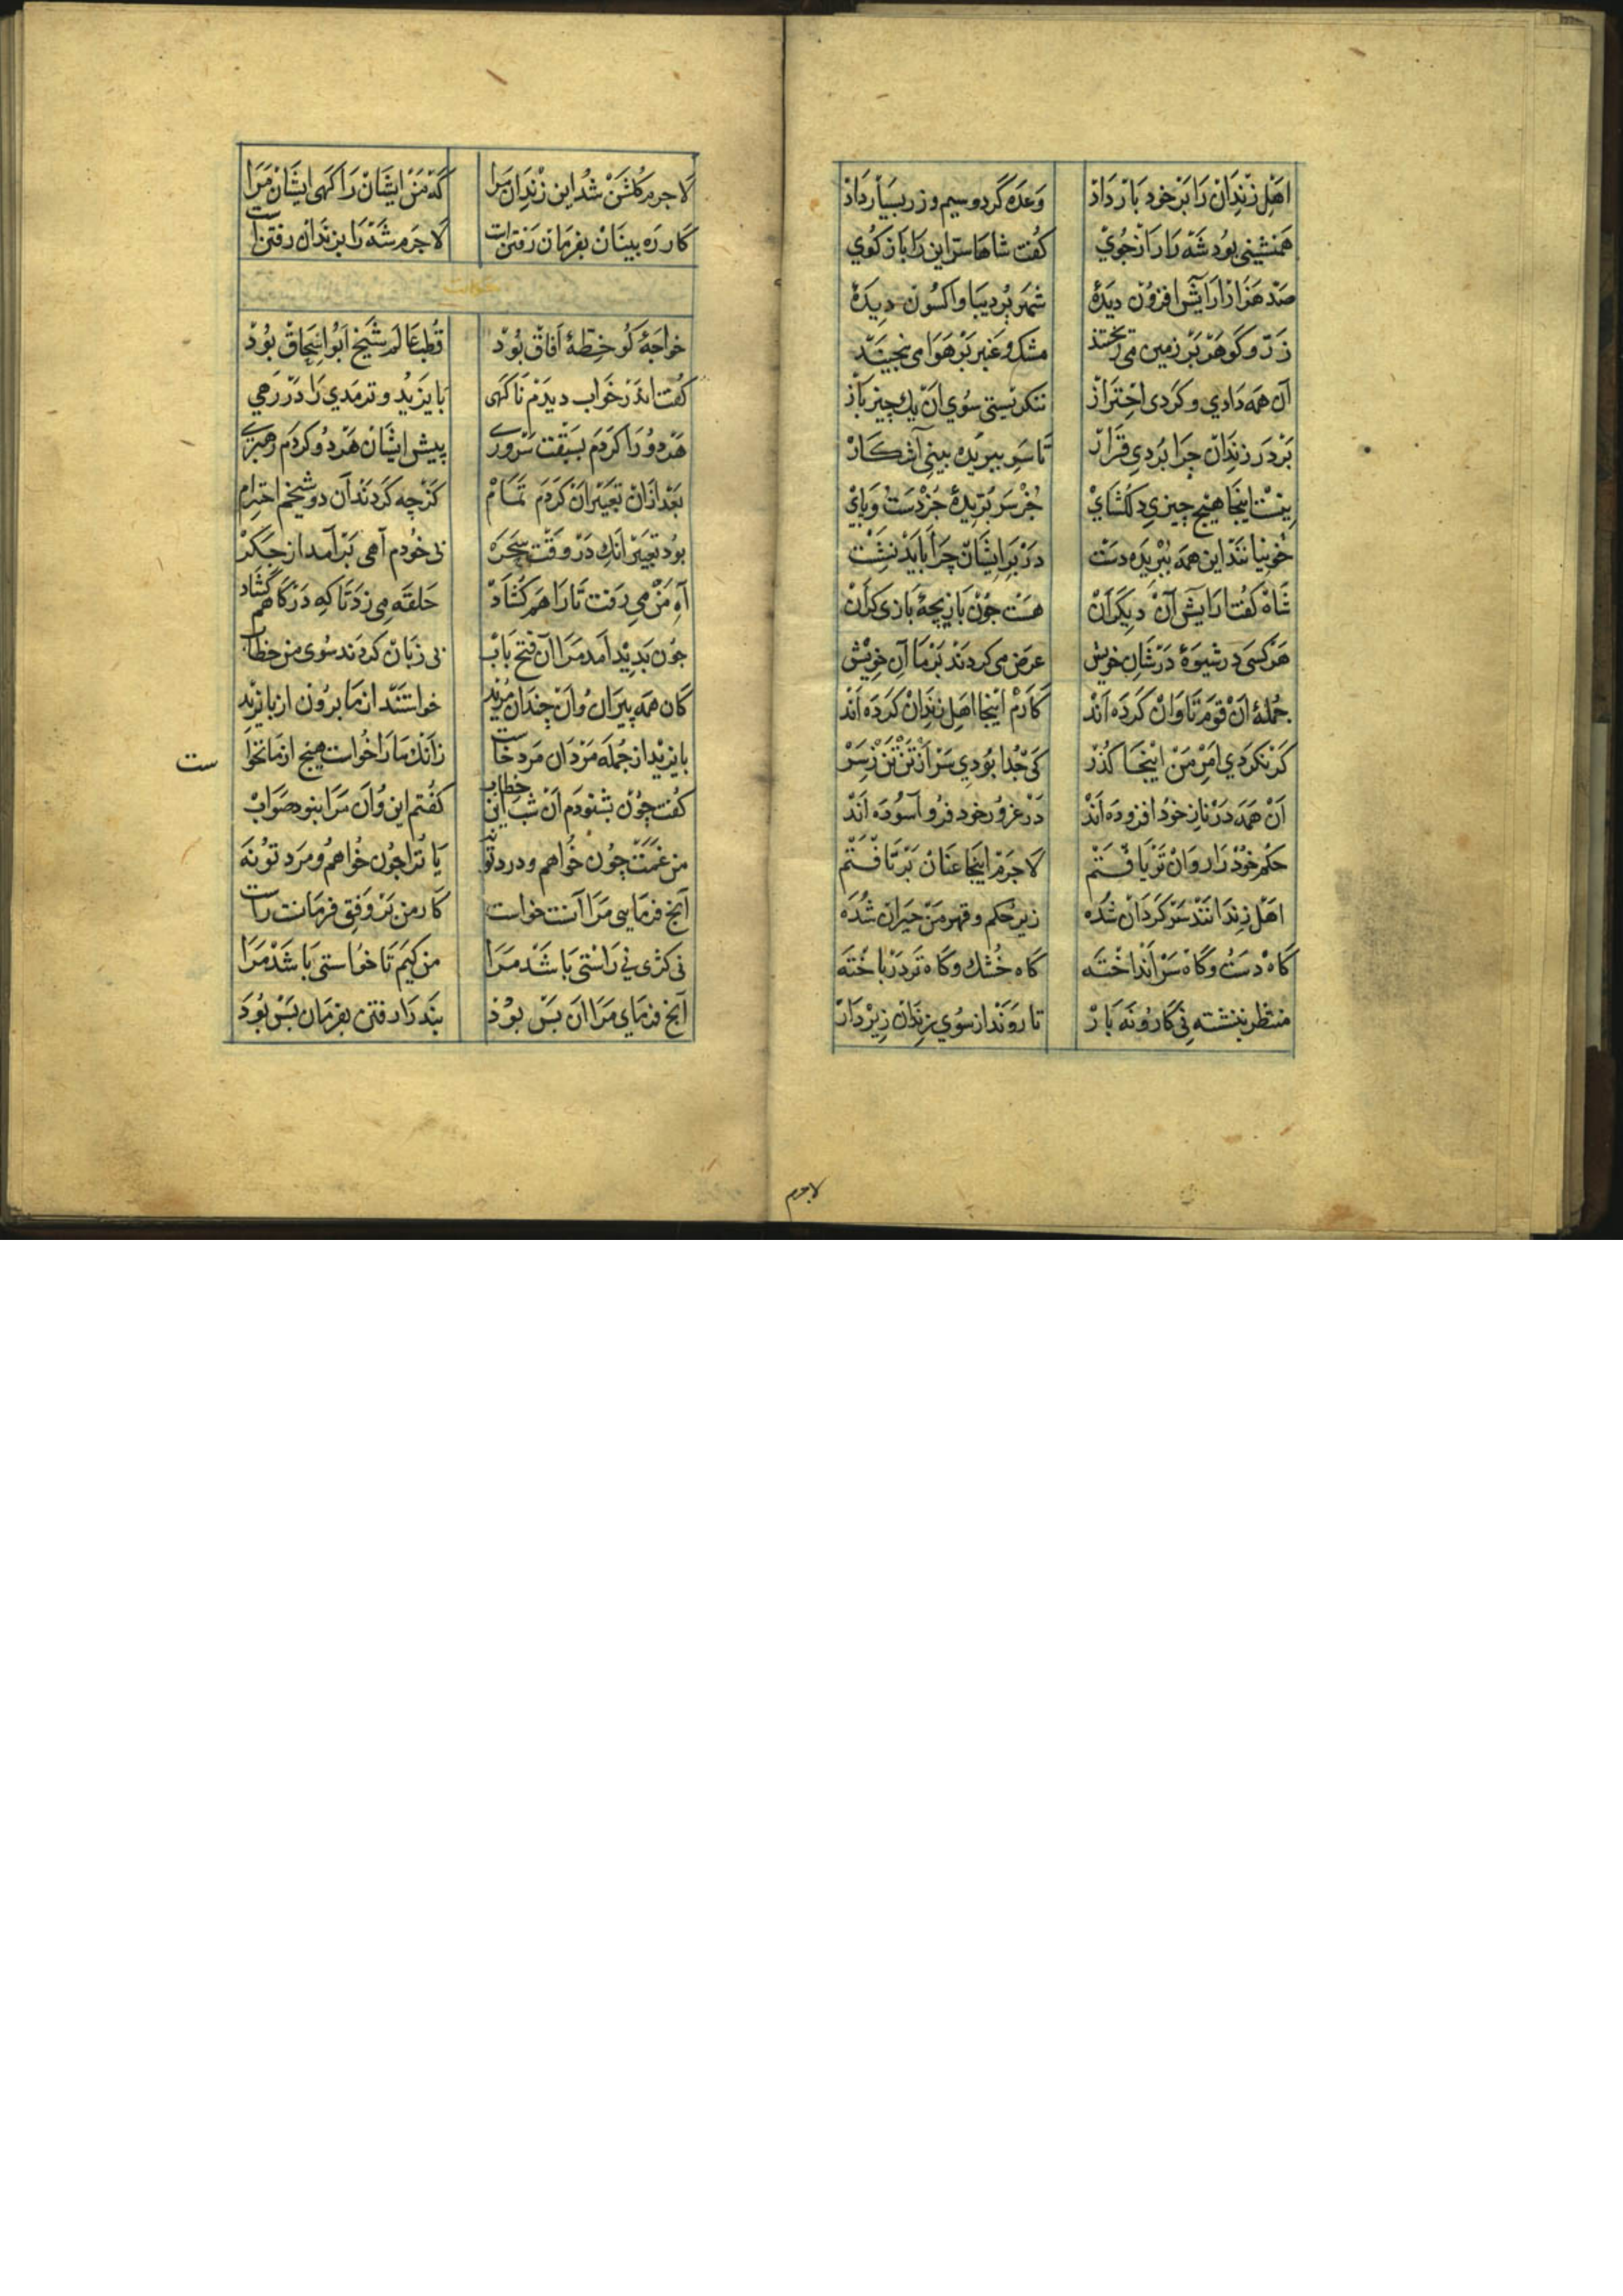 اهل زندان را بر خود بار داد وعده کردو سیم و زر بسیار داد
همنشینی بود شه را رازجوی کفت شاها سر این را باز کوی
صد هزار آرایش افزون دیدۀ شهر پر دیبا و اکسون دیدۀ
زر و کوهر بر زمین می ریختند مشک و عنبر بر هوا می بیختند
آن همه دیدی و کردی احتراز ننکرستی سوی آن یک چیز باز
بر در زندان چرا بردی قرار تا سر ببریده بینی آشکار
نیست اینجا هیج چیزی دلکشای جز سر بریدۀ جز دست و پای
خونیانند این همه ببریده دست در بر ایشان چرا باید نشست
شاه کفت آرایش آن دیکران هست جون بازیچۀ بازی کران
هر کسی در شیوۀ در شان خویش عرض می کردند بر ما آن خویش
جملۀ آن قوم تاوان کرده اند کارم اینجا اهل زندان کرده اند
کر نکردی امر من اینجا کذر کی جدا بودی سر از تن تن ز سر
آن همه در ناز خود افزوده اند در غرور خود فرو آسوده اند
حکم خود را روان تر یافتم لاجرم اینجا عنان بر تافتم
اهل زندانند سر کردان شده زیر حکم و قهر من حیران شده
کاه دست و کاه سر انداخته کاه خشک و کاه تر درباخته
منتظر بنشسته نی کار و نه بار تا روند از سوی زندان زیر دار
لاجرم
لاجرم کلشن شد این زندان مرا که من ایشان را کهی ایشان مرا
کار ره بینان بفرمان رفتن است لاجرم شه را بزندان رفتن است
خواجۀ کو خطۀ آفاق بود قطب عالم شیخ ابو اسحاق بود
کفت اندر خواب دیدم ناکهی بایزید و ترمدی را در رهی
هر دو را کردم بسبقت سروری پیش ایشان هر دو کردم رهبری
بعد ازان تعبیر آن کردم تمام کز چه کردند آن دو شیخم احترام
بود تعبیر آنک در وقت سحر بی خودم آهی بر آمد از جکر
آه من می رفت تا راهم کشاد حلقه می زد تا که درکاهم کشاد
جون بدید آمد مرا آن فتح باب بی زبان کردند سوی من خطاب
کان همه پیران و آن چندان مرید خواستند از ما برون از بایزید
بایزید از جمله مردان مرد خاست زانک ما را خواست هیج از ما نخواست
کفت چون بشنودم آن شب این خطاب کفتم این و آن مرا بنود صواب
من غمت چون خواهم و درد تو نه یا ترا جون خواهم و مرد تو نه
آنج فرمایی مرا آنست خواست کار من بر وفق فرمانت راست
نی کژی نی راستی باشد مرا من کیم تا خواستی باشد مرا
آنج فرمای مرا آن بس بود بنده را رفتن بفرمان بس بود